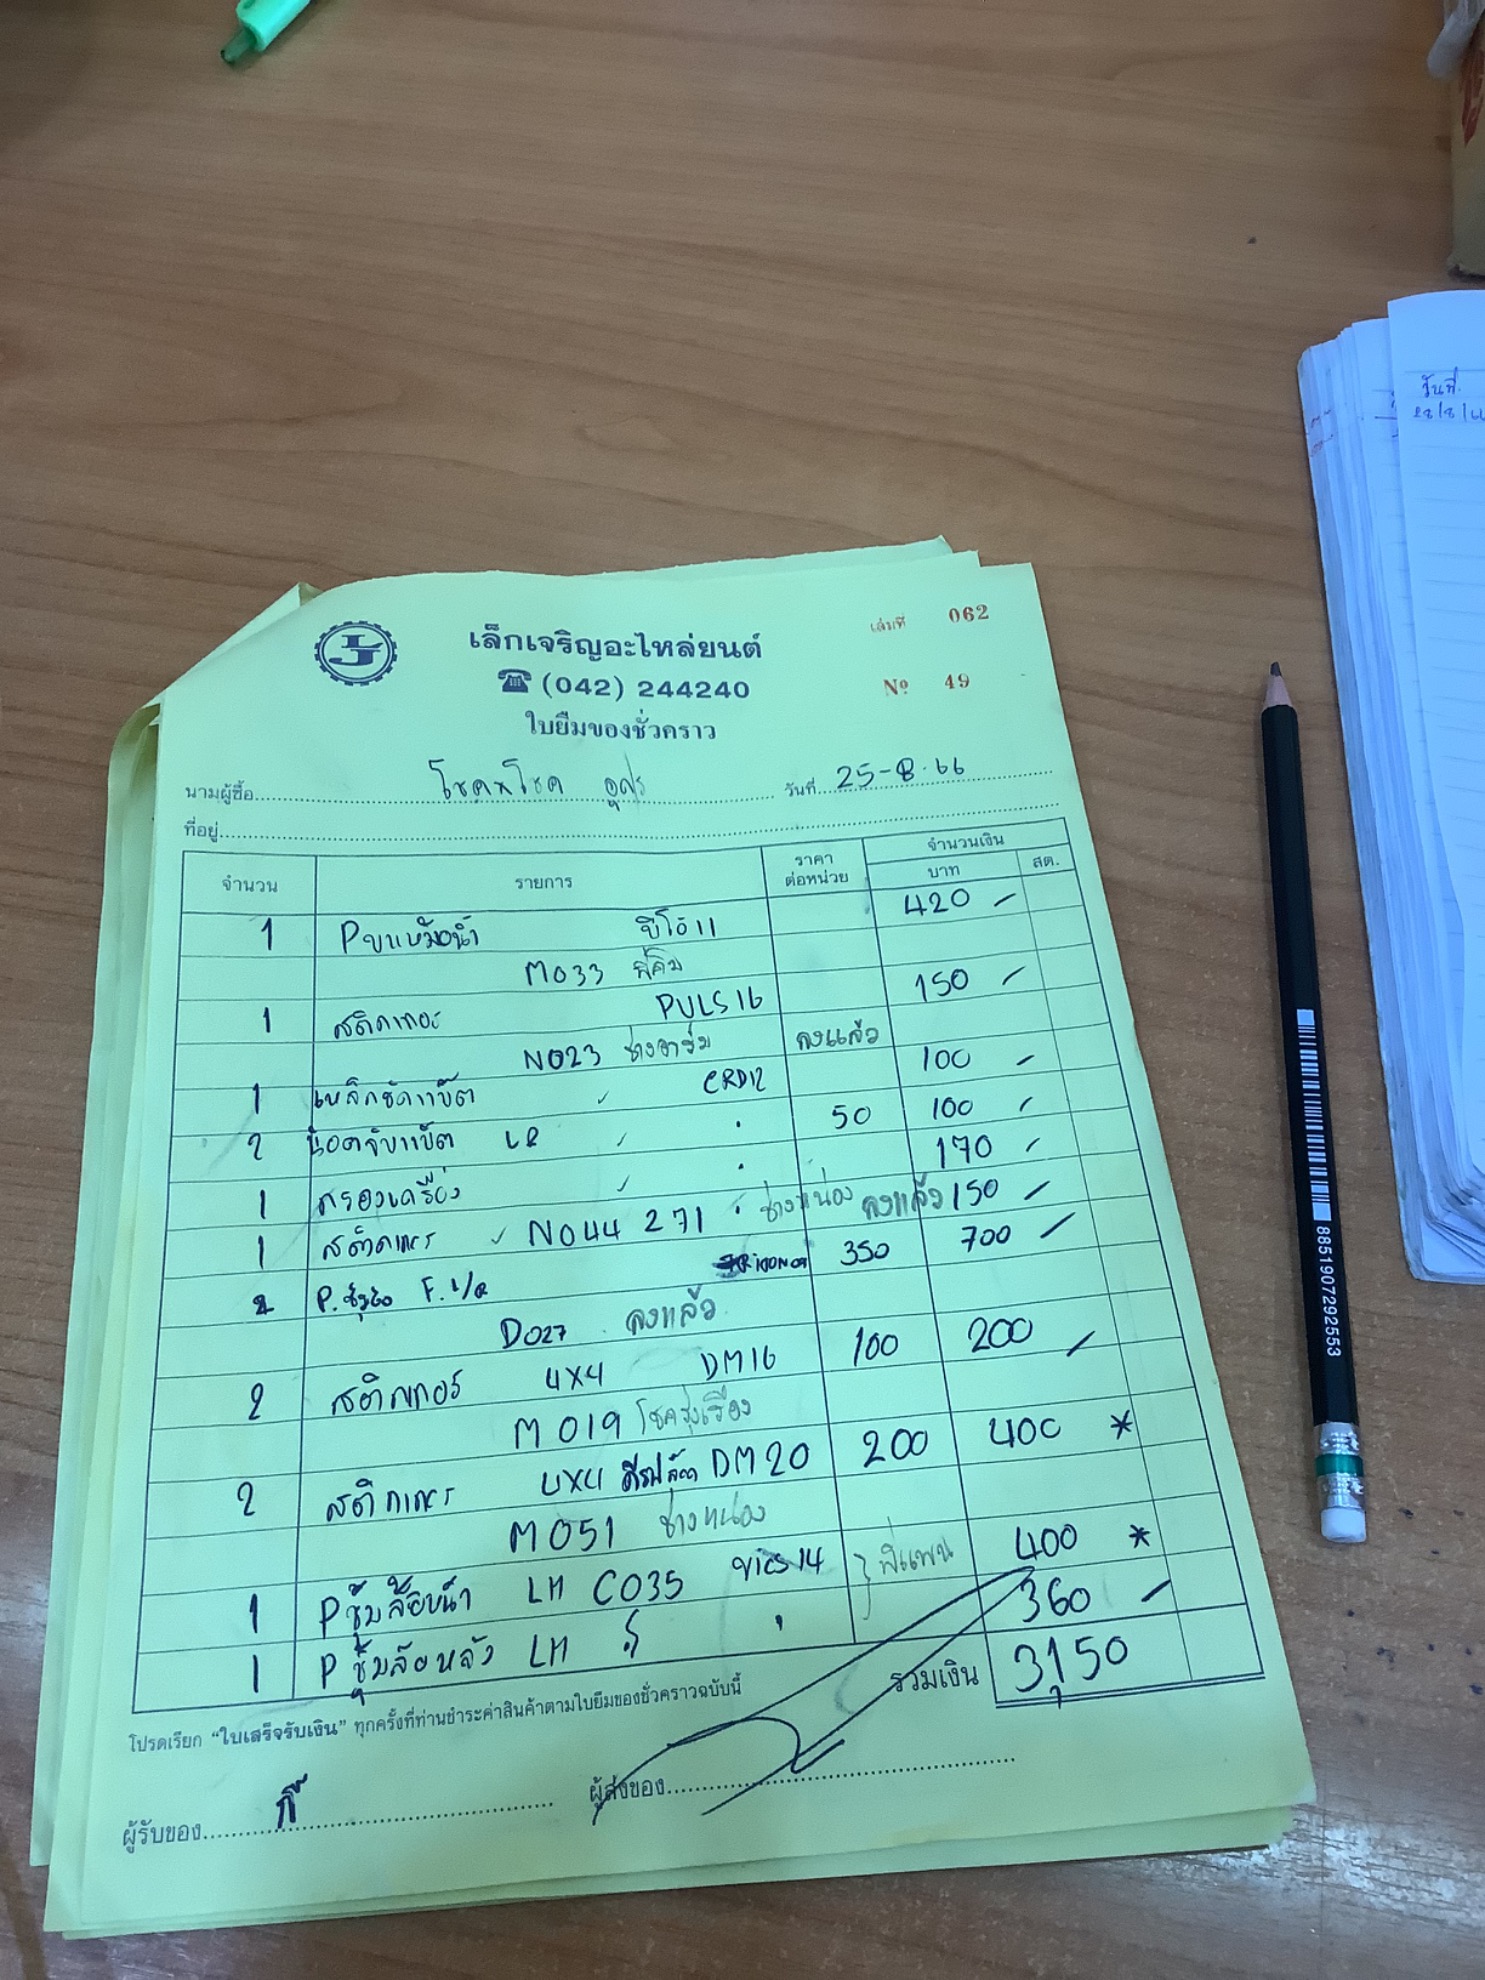 เล่มที่ 062
เล็กเจริญอะไหล่ยนต์
LJ
(042) 244240
Nº 49
ใบยืมของชั่วคราว
นามผู้ซื้อ โชคNโชค อุดร วันที่ 25-8-66
ที่อยู่
จำนวน รายการ ราคาต่อหน่วย จำนวนเงิน บาท สต.
1 Pขาหม้อน้ำ วีโก้11 420 -
M033 พี่คิม
1 สติกเกอร์ PULS16 150 -
N023 ช่างอาร์ม ลงแล้ว
1 เหล็กขัดแบ็ต CRD12 100 -
2 น๊อตจับแบ็ต LR 50 100 -
1 กรองเครื่อง 170 -
1 สติกเกอร์ N044 271 ช่างหน่อง ลงแล้ว 150 -
2 P. F. L/R 350 700 -
D027 ลงแล้ว
2 สติกเกอร์ 4X4 DM16 100 200 -
M019 โชครุ่งเรือง
2 สติกเกอร์ 4X4 DM20 200 400 *
M051 ช่างหน่อง
1 Pซุ้มล้อหน้า LH C035 VIOS14 พี่แพน 400 *
1 Pซุ้มล้อหลัง LH 360 -
รวมเงิน 3,150
โปรดเรียก "ใบเสร็จรับเงิน" ทุกครั้งที่ท่านชำระค่าสินค้าตามใบยืมของชั่วคราวฉบับนี้
ผู้รับของ กี้ ผู้ส่งของ
วันที่
28/8/66
8851907292553